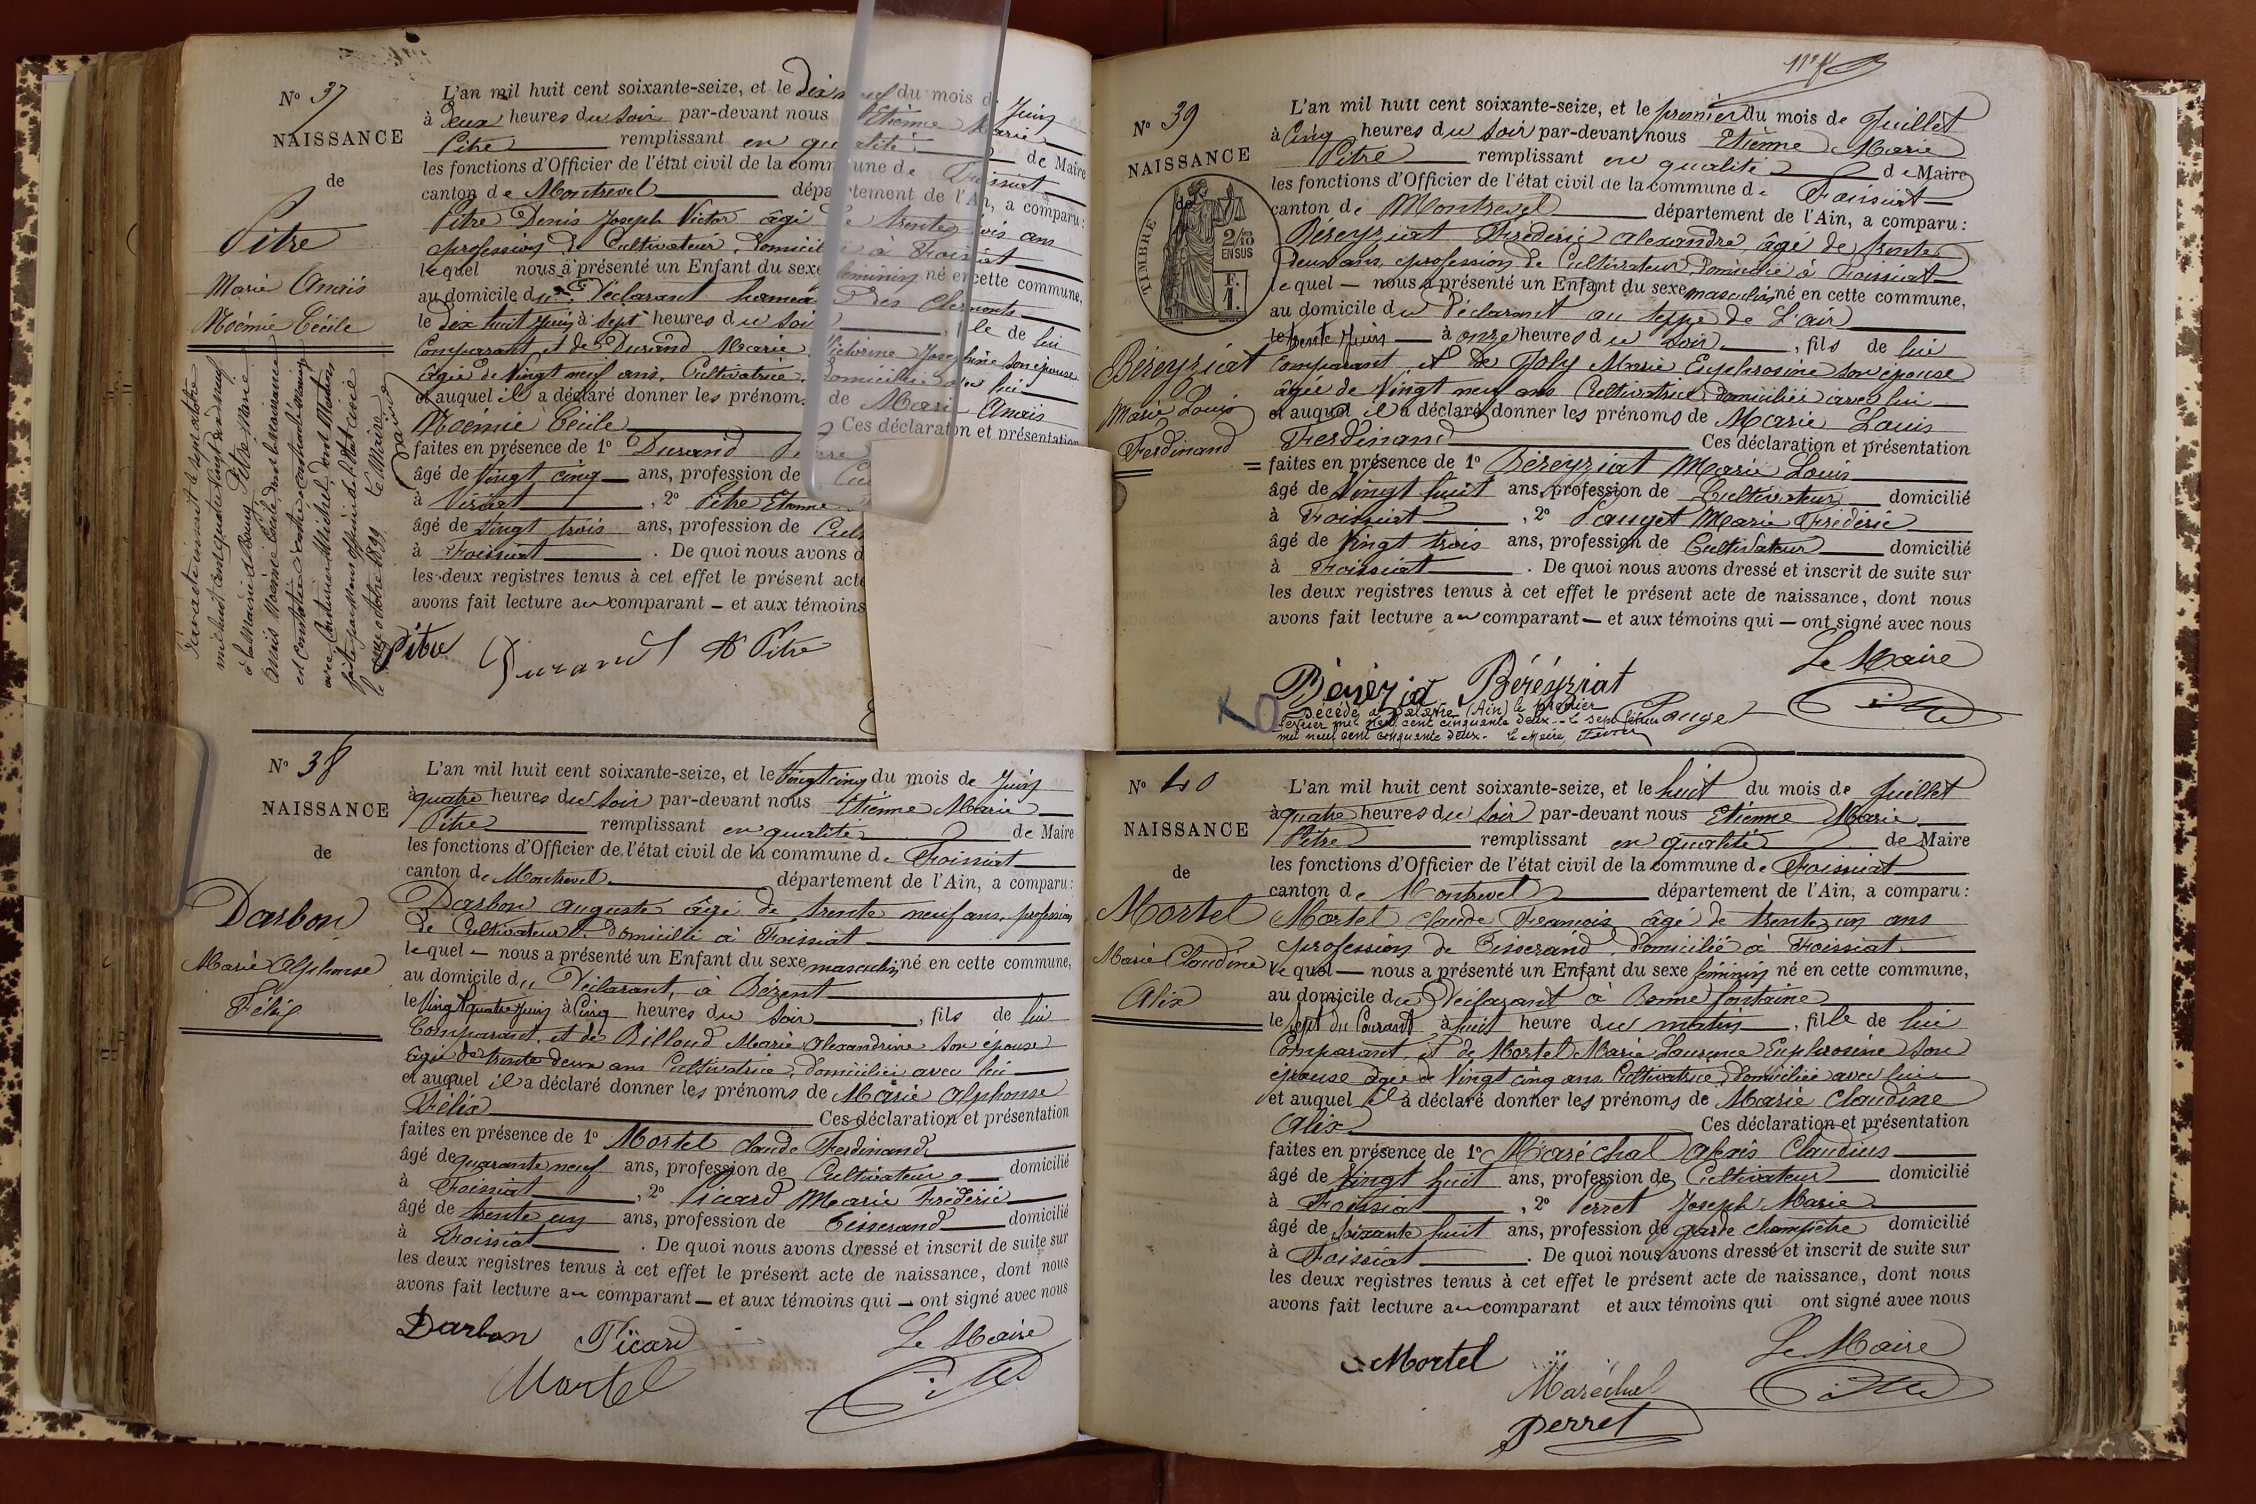 N° 37
NAISSANCE
de
Pitre
Marie Anaïs
Noémie Cécile
L'an mil huit cent soixante-seize, et le du mois de Juin
à deux heures du soir par-devant nous Etienne Marie
Pitre remplissant en qualité de Maire
les fonctions d'Officier de l'état civil de la commune de Foissiat
canton de Montrevel département de l'Ain, a comparu:
Pitre Denis Joseph Victor âgé de trente trois ans
profession de Cultivateur, domicilié à Foissiat
lequel nous a présenté un Enfant du sexe féminin né en cette commune,
au domicile du Déclarant hameau des
le dix huit Juin à sept heures du soir, fille de lui
Comparant et de Durand Marie Victorine Joséphine son épouse
âgée de Vingt neuf ans, Cultivatrice, domiciliée avec lui
et auquel il a déclaré donner les prénoms de Marie Anaïs
Noémie Cécile Ces déclaration et présentation
faites en présence de 1° Durand
âgé de Vingt cinq ans, profession de
à Viriat, 2° Pitre Etienne
âgé de Vingt trois ans, profession de
à Foissiat. De quoi nous avons
les deux registres tenus à cet effet le présent acte
avons fait lecture au comparant — et aux témoins
Pitre Durand Pitre
à la Mairie de Bourg Pitre Marie
Anaïs Noémie Cécile, dont la naissance
est constatée ci-contre a contracté mariage
avec Couturier Michel, dont Mention
faite par nous officier de l'état civil
le octobre 1899 Le Maire
N° 38
NAISSANCE
de
Darbon
Marie Alphonse
Félix
L'an mil huit cent soixante-seize, et le Vingt cinq du mois de Juin
à quatre heures du soir par-devant nous Etienne Marie
Pitre remplissant en qualité de Maire
les fonctions d'Officier de l'état civil de la commune de Foissiat
canton de Montrevel département de l'Ain, a comparu:
Darbon Auguste âgé de trente neuf ans, profession
de Cultivateur, domicilié à Foissiat
lequel — nous a présenté un Enfant du sexe masculin né en cette commune,
au domicile du Déclarant, à Bézent
le Vingt quatre Juin à Cinq heures du soir, fils de lui
Comparant, et de Billoud Marie Alexandrine son épouse
âgée de trente deux ans Cultivatrice, domiciliée avec lui
et auquel il a déclaré donner les prénoms de Marie Alphonse
Félix Ces déclaration et présentation
faites en présence de 1° Mortel Claude Ferdinand
âgé de quarante neuf ans, profession de Cultivateur domicilié
à Foissiat, 2° Picard Marie Frédéric
âgé de trente un ans, profession de Tisserand domicilié
à Foissiat. De quoi nous avons dressé et inscrit de suite sur
les deux registres tenus à cet effet le présent acte de naissance, dont nous
avons fait lecture au comparant — et aux témoins qui — ont signé avec nous
Darbon Picard Le Maire
Mortel Pitre
N° 39
NAISSANCE
de
TIMBRE
2/10
EN SUS
F.
1.
Béreyziat
Marie Louis
Ferdinand
L'an mil huit cent soixante-seize, et le premier du mois de Juillet
à Cinq heures du soir par-devant nous Etienne Marie
Pitre remplissant en qualité de Maire
les fonctions d'Officier de l'état civil de la commune de Foissiat
canton de Montrevel département de l'Ain, a comparu:
Béreyziat Frédéric Alexandre âgé de trente
deux ans, profession de Cultivateur, domicilié à Foissiat
lequel — nous a présenté un Enfant du sexe masculin né en cette commune,
au domicile du Déclarant au teppe de L'air
le trente Juin à onze heures du soir, fils de lui
Comparant, et de Joly Marie Euphrosine son épouse
âgée de Vingt neuf ans Cultivatrice, domiciliée avec lui
et auquel il a déclaré donner les prénoms de Marie Louis
Ferdinand Ces déclaration et présentation
faites en présence de 1° Béreyziat Marie Louis
âgé de Vingt huit ans, profession de Cultivateur domicilié
à Foissiat, 2° Pauget Marie Frédéric
âgé de Vingt trois ans, profession de Cultivateur domicilié
à Foissiat. De quoi nous avons dressé et inscrit de suite sur
les deux registres tenus à cet effet le présent acte de naissance, dont nous
avons fait lecture au comparant — et aux témoins qui — ont signé avec nous
Le Maire
Béréyziat Pauget Pitre
Décédé à (Ain) le premier
février mil neuf cent cinquante deux. le sept février
mil neuf cent cinquante deux. Le Maire,
N° 40
NAISSANCE
de
Mortel
Marie Claudine
Alix
L'an mil huit cent soixante-seize, et le huit du mois de Juillet
à quatre heures du soir par-devant nous Etienne Marie
Pitre remplissant en qualité de Maire
les fonctions d'Officier de l'état civil de la commune de Foissiat
canton de Montrevel département de l'Ain, a comparu:
Mortel Claude François âgé de trente un ans
profession de Tisserand, domicilié à Foissiat
lequel — nous a présenté un Enfant du sexe féminin né en cette commune,
au domicile du Déclarant à Bonne fontaine
le sept du Courant à huit heure du matin, fille de lui
Comparant, et de Mortel Marie Laurence Euphrosine son
épouse âgée de Vingt cinq ans Cultivatrice, domiciliée avec lui
et auquel il a déclaré donner les prénoms de Marie Claudine
Alix Ces déclaration et présentation
faites en présence de 1° Maréchal Claudius
âgé de Vingt huit ans, profession de Cultivateur domicilié
à Foissiat, 2° Perret Joseph Marie
âgé de soixante huit ans, profession de garde champêtre domicilié
à Foissiat. De quoi nous avons dressé et inscrit de suite sur
les deux registres tenus à cet effet le présent acte de naissance, dont nous
avons fait lecture au comparant et aux témoins qui ont signé avec nous
Mortel Le Maire
Maréchal Pitre
Perret